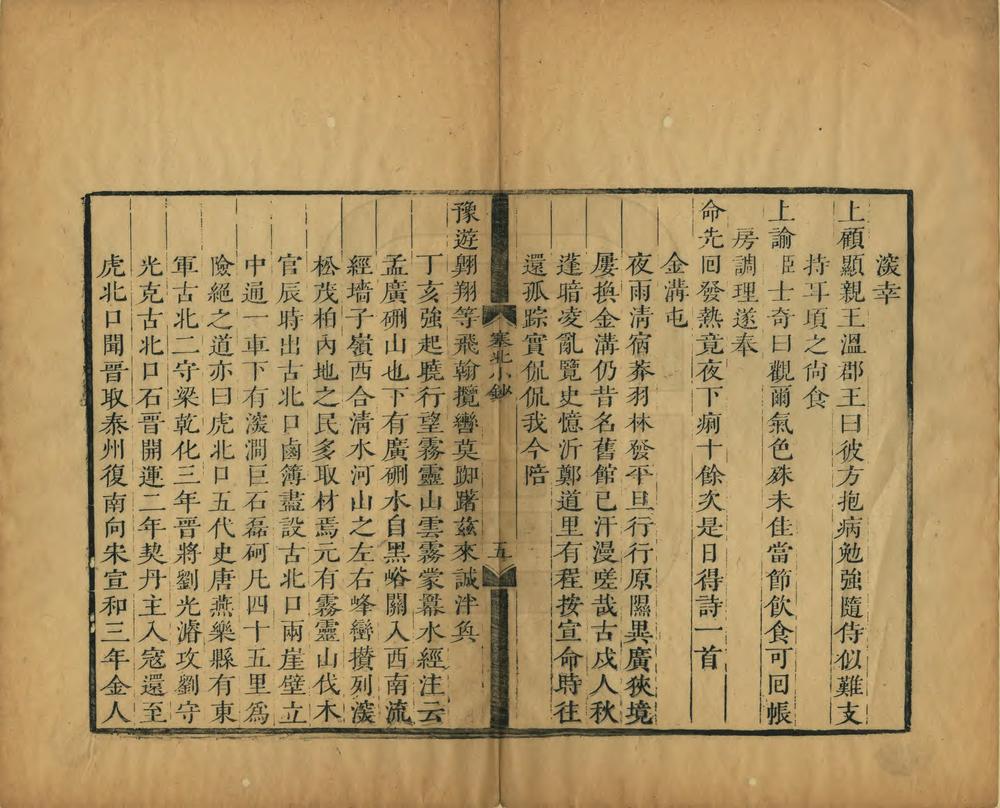 深幸
上顧顯親王溫郡王曰彼方抱病勉強隨侍似難支
持耳頃之尙食
上諭臣士奇曰觀爾氣色殊未佳當節飲食可囘帳
房調理遂奉
命先囘發熱竟夜下痢十餘次是日得詩一首
金溝屯
夜雨淸宿莽羽林發平旦行行原隰異廣狹境
屢換金溝仍昔名舊館已汗漫嗟哉古戍人秋
蓬暗凌亂覽史憶沂鄭道里有程按宣命時往
還孤踪實侃侃我今陪
塞北小鈔
五
豫遊翺翔等飛翰攬轡莫踟躇茲來誠泮奐
丁亥強起曉行望霧靈山雲霧蒙羃水經注云
孟廣硎山也下有廣硎水自黑峪關入西南流
經墻子嶺西合淸水河山之左右峰巒攢列深
松茂柏內地之民多取材焉元有霧靈山伐木
官辰時出古北口鹵簿盡設古北口兩崖壁立
中通一車下有深澗巨石磊砢凡四十五里爲
險絕之道亦曰虎北口五代史唐燕樂縣有東
軍古北二守梁乾化三年晉將劉光濬攻劉守
光克古北口石晉開運二年契丹主入寇還至
虎北口聞晉取泰州復南向宋宣和三年金人